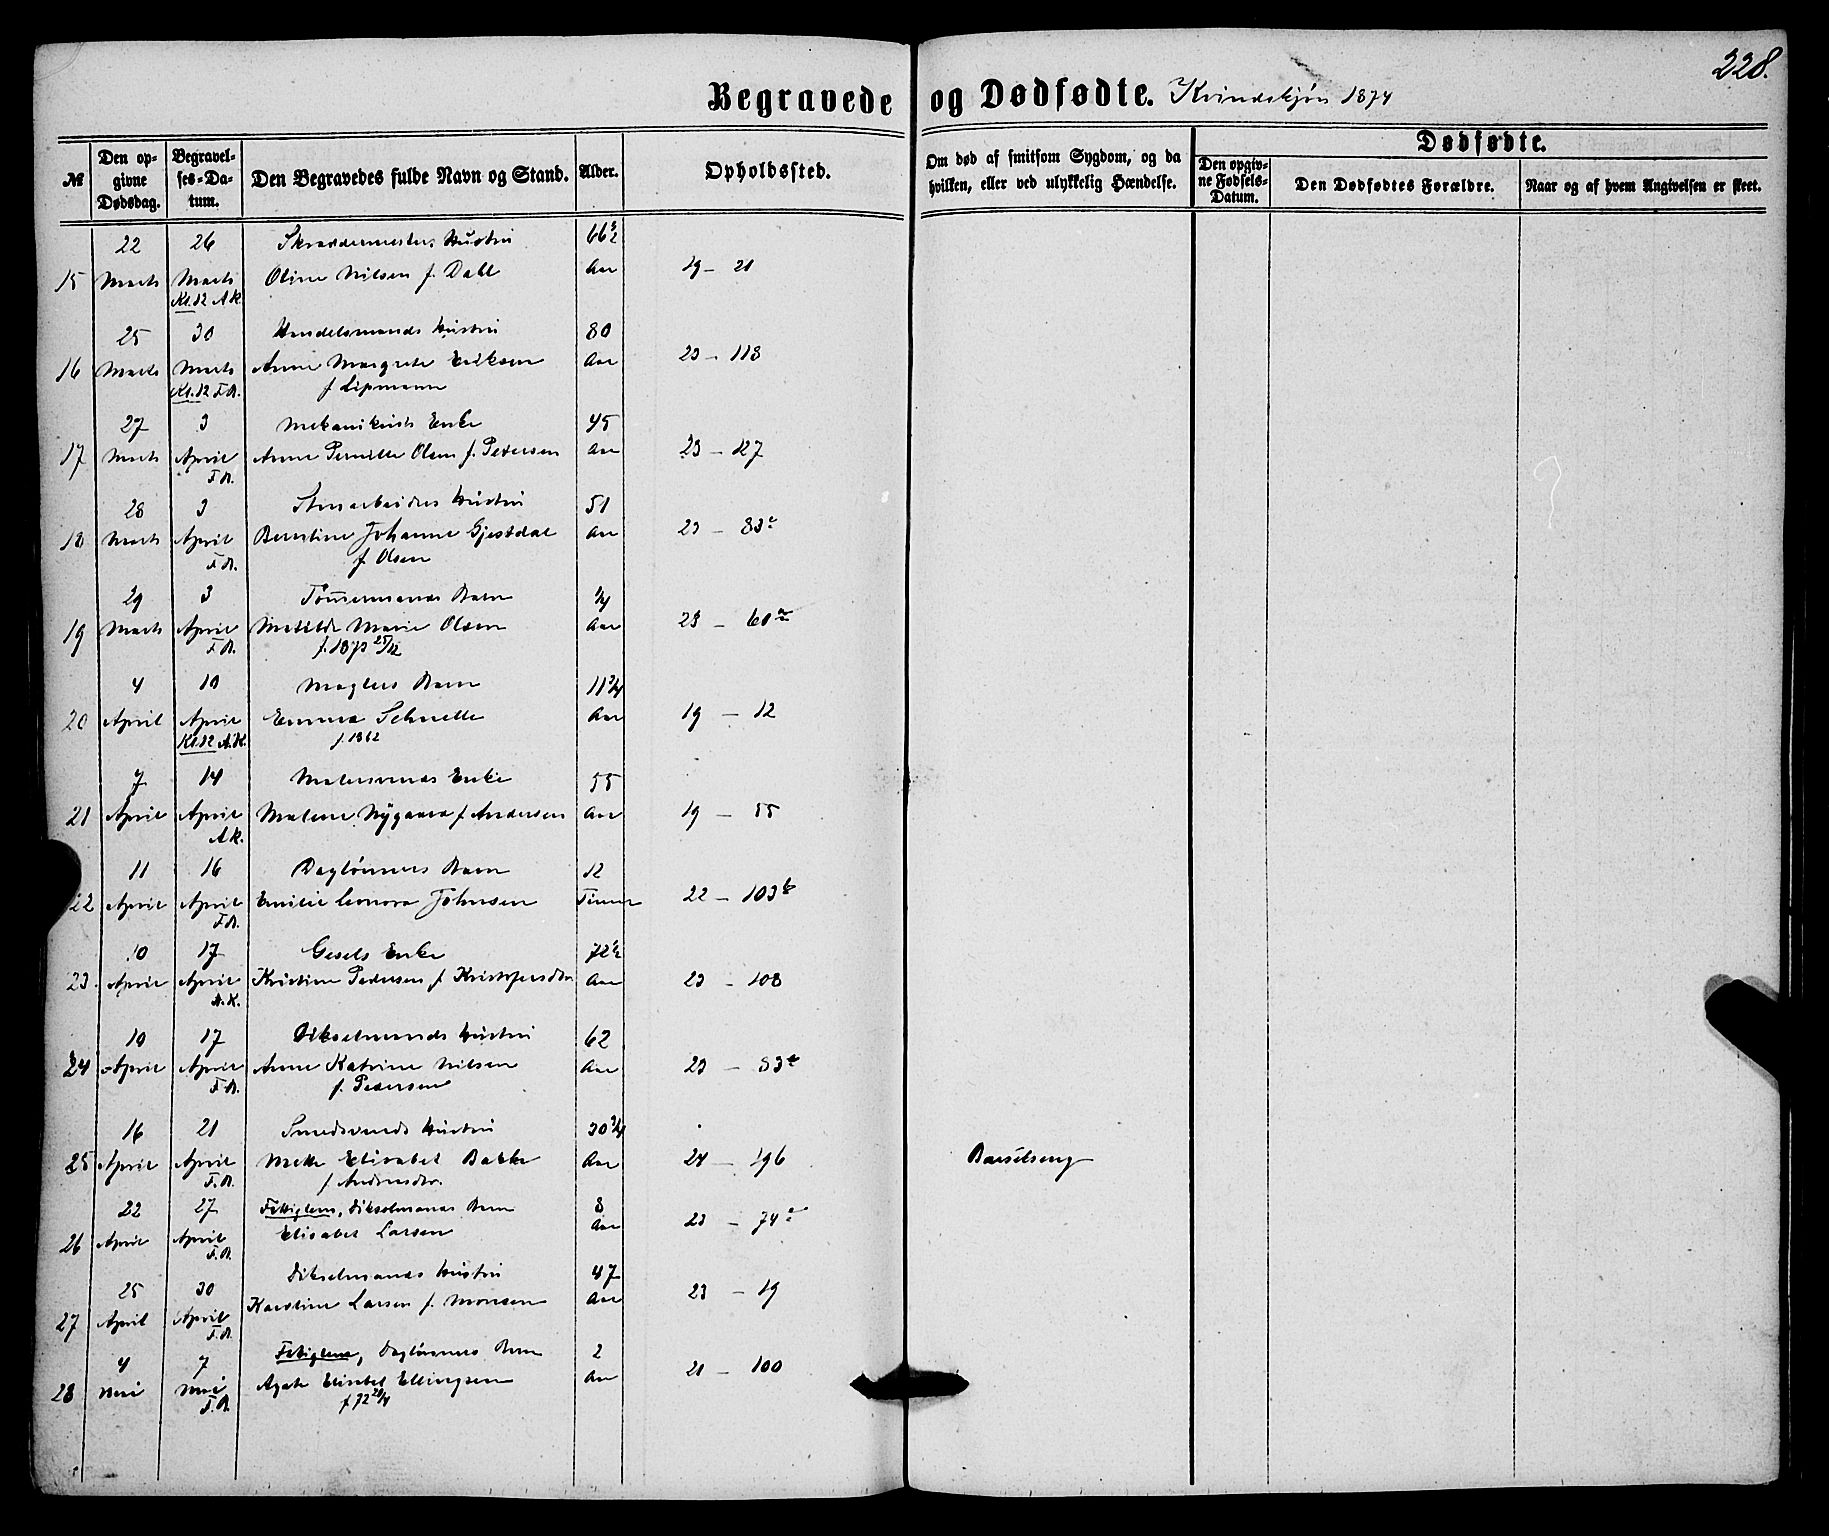 228.
Begravede og Dødfødte. Kvindekjøn 1874
№ | Den opgivne Dødsdag. | Begravelses-Datum. | Den Begravedes fulde Navn og Stand. | Alder. | Opholdssted. | Om død af smitsom Sygdom, og da hvilken, eller ved ulykkelig Hændelse. | Dødfødte. | Den opgivne Fødsels-Datum. | Den Dødfødtes Forældre. | Naar og af hvem Angivelsen er skeet.
22 26 Skræddermesters Hustru 66½
15 Marts Marts Oline Nilsen f. Dahl Aar 19 - 21
Kl.12 A K.
25 30 Handelsmands Hustru 80
16 Marts Marts Anne Margrete Eriksen Aar 23 - 118
Kl.12 F.A. f Lipmann
27 3 Mekanikers Enke 45
17 Marts April Anne Pernille Olsen f. Pedersen Aar 23 - 127
F A.
28 3 Stenarbeiders Hustru 51
18 Marts April Berntine Johanne Gjestdal Aar 23 - 83
F A. f. Olsen
29 3 Tømermands Barn ¼
19 Marts April Matilde Marie Olsen Aar 23 - 60
F A. f. 1873 25/12
4 10 Mæglers Barn 11¾
20 April April Emma Schnelle Aar 19 - 12
Kl.12 A.K. f. 1862
7 14 Malersvends Enke 55
21 April April Malene Nygaard f Andersen Aar 19 - 55
A K.
11 16 Dagløners Barn 12
22 April April Emilie Leonora Johnsen Timer 22 - 103 b
F A.
10 17 Gesels Enke 72½
23. April April Kristine Pedersen f Kristofersdtr Aar 23 - 108
A. K.
10 17 Sikselmands Hustru 62
24 April April Anne Katrine Nilsen Aar 23 - 83
F A. f. Pedersen
16 21 Smedsvends Hustru 30¾
25 April April Mette Elisabet Bakke Aar 24 - 196 Barselseng
F. A. f Andersdtr.
22 27 Fattiglem, Sikselmands Barn 8
26 April April Elisabet Larsen Aar 23 - 74 a
F. A.
25 30 Sikselmands Hustru 47
27 April April Karoline Larsen f. Monsen Aar 23 - 19
F. A.
4 7 Fattiglem, Dagløners Barn 2
28 Mai Mai Agate Elisabet Ellingsen Aar 21 - 100
F. A. f 72